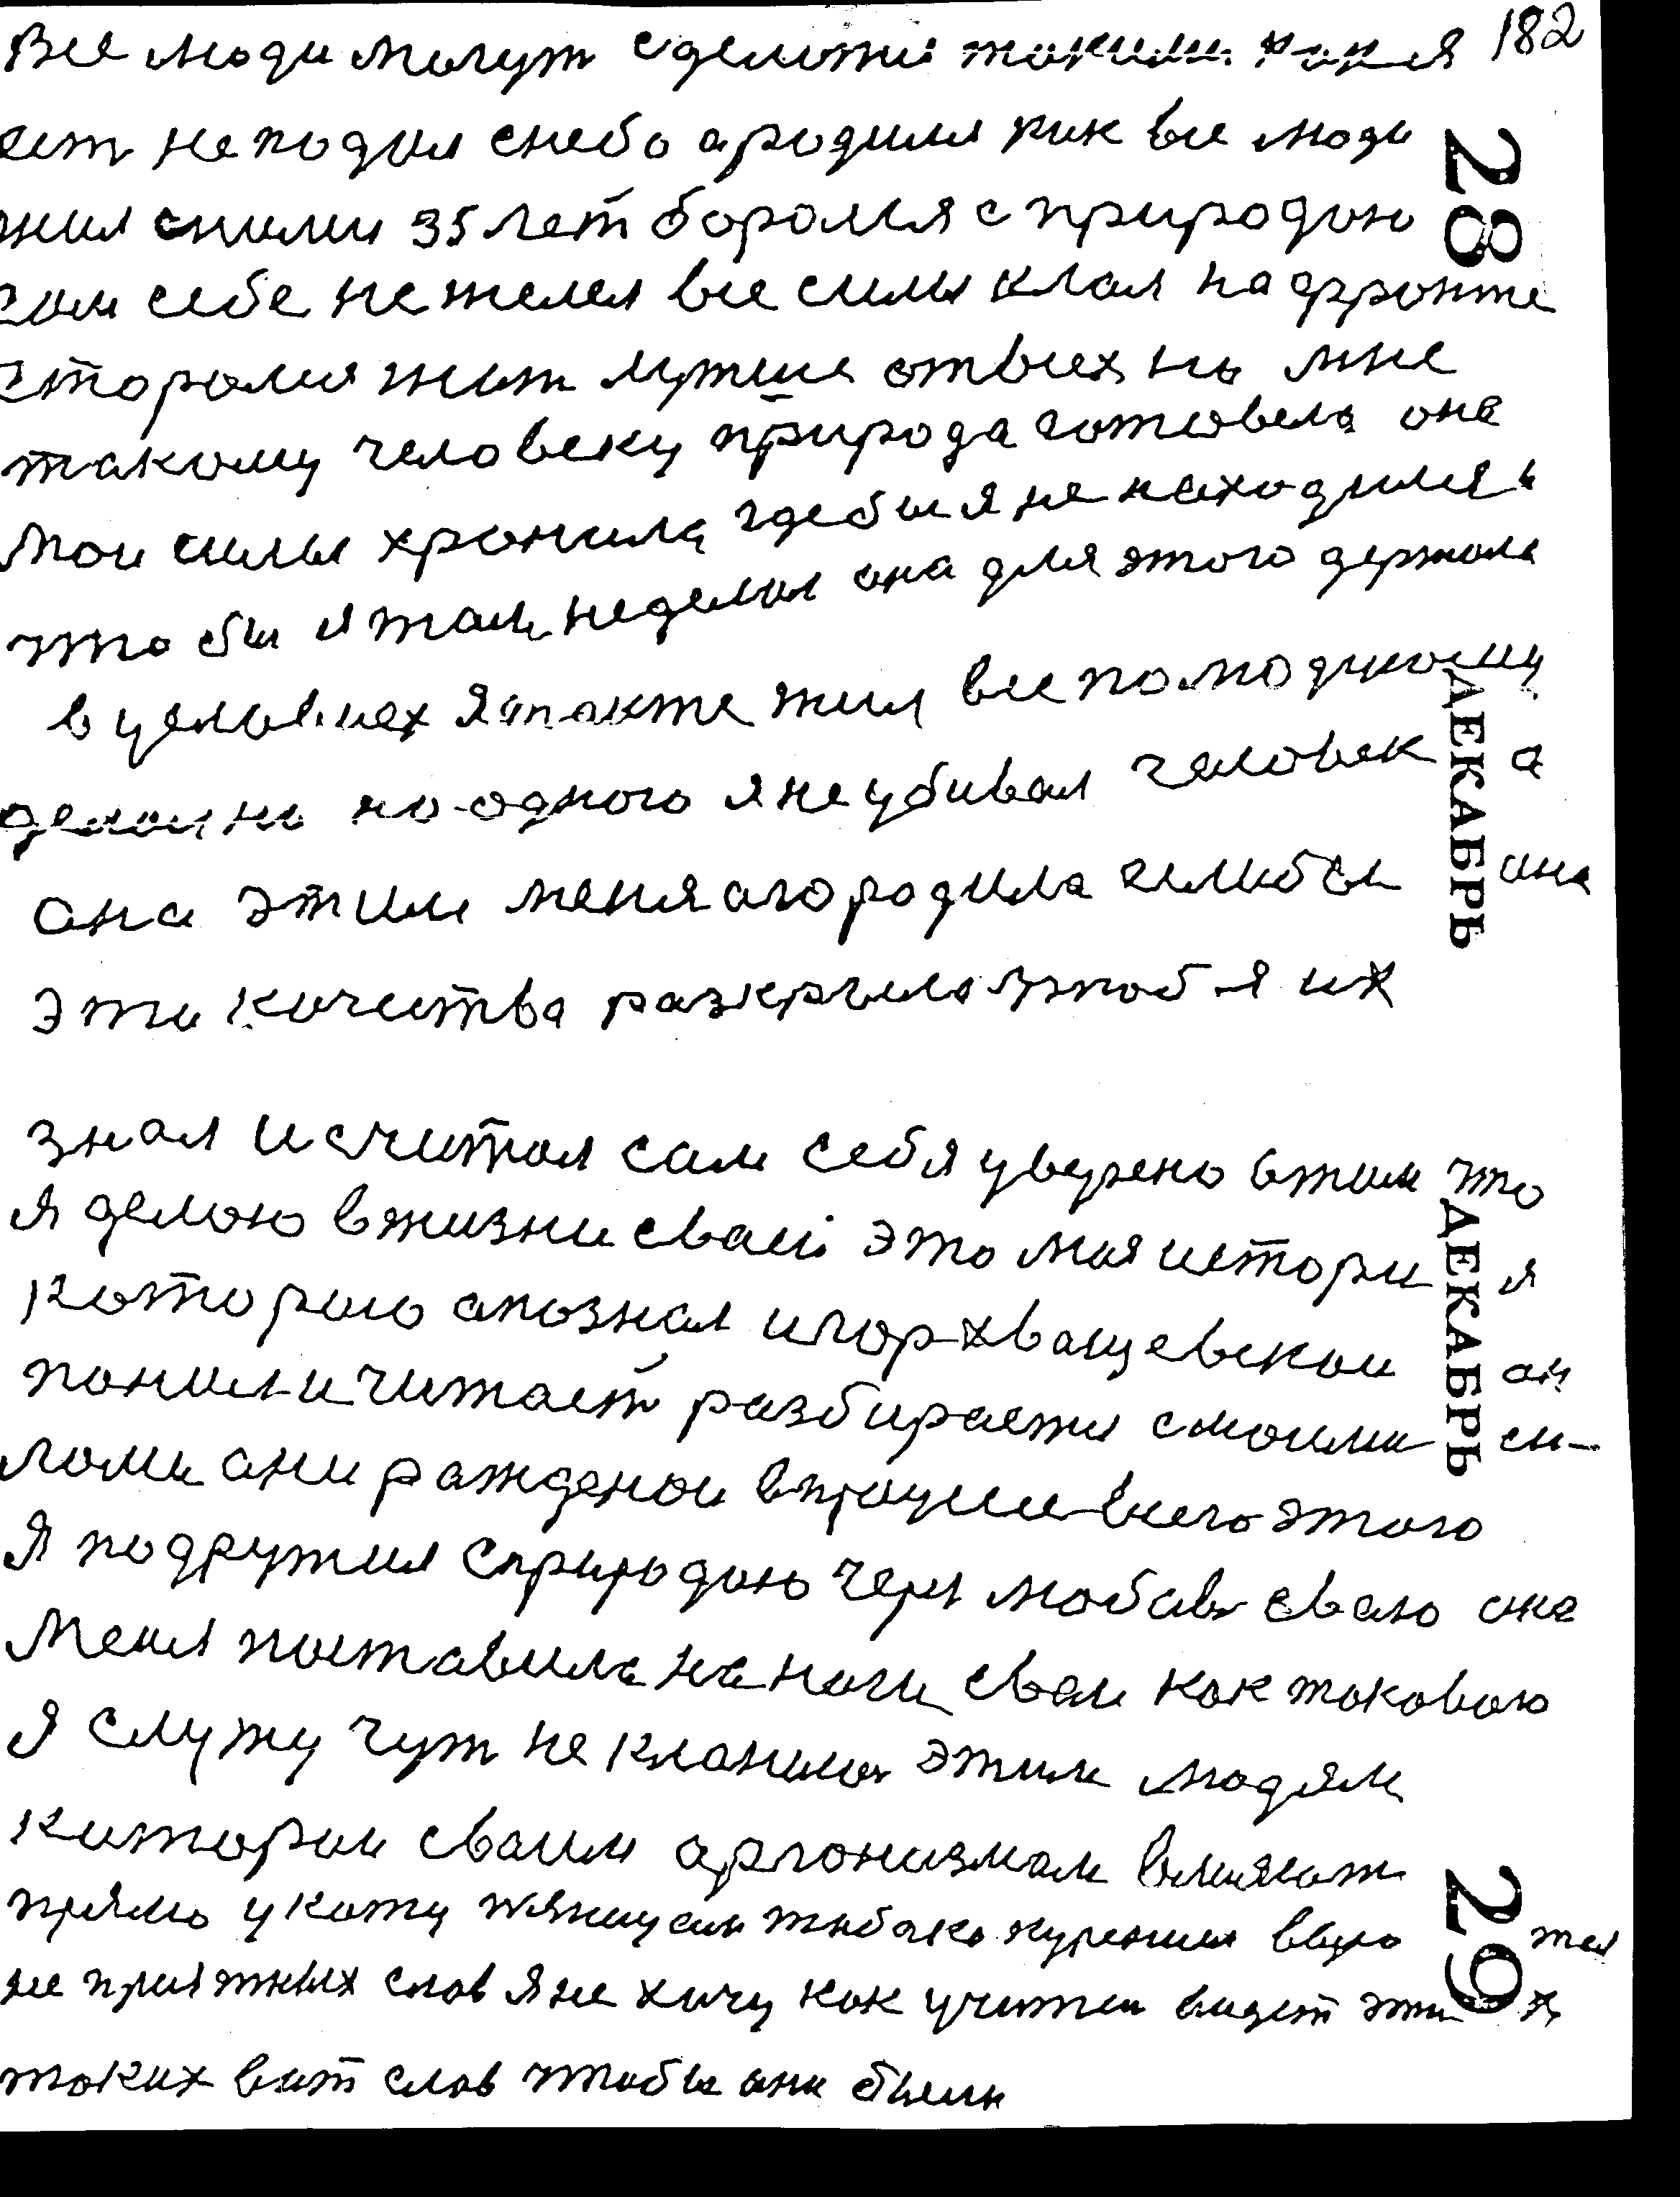 Все люди могут сделатся такими как я 182
ест не подал снебо а родился как все люди
28
жил сними 35 лет боролся с природою
сам себе не жалел все силы клал на фронте
старался жит лутше отвсех но мне
такому человеку природа готовела она
мои силы хронила где бы я не находился
что бы я там неделал она для этого держала
в условиях я на факте жил все по молодному
ДЕКАБРЬ
делал но не одного я не убивал человек а
она этим меня огородила если бы она
эти качества разкрыла чтоб я их
знал и считал сам себя уверено втом что
я делаю вжизни сваей это моя истори я
ДЕКАБРЬ
которого опознал игор хващевскои он
понил и читает разбирается смоими си-
ломи они рожденои впроцисе всего этого
я подружил сприродою через любов сваю она
меня поставила на ноги сваи как таковою
я служу чут не кланюсь этим людям
котории сваим аргонизмам влияют
29
прямо укожу пянцуем табако курением ввуо тея
не приятных слов я не хочу как учител видет этих
таких вот слов чтобы они были